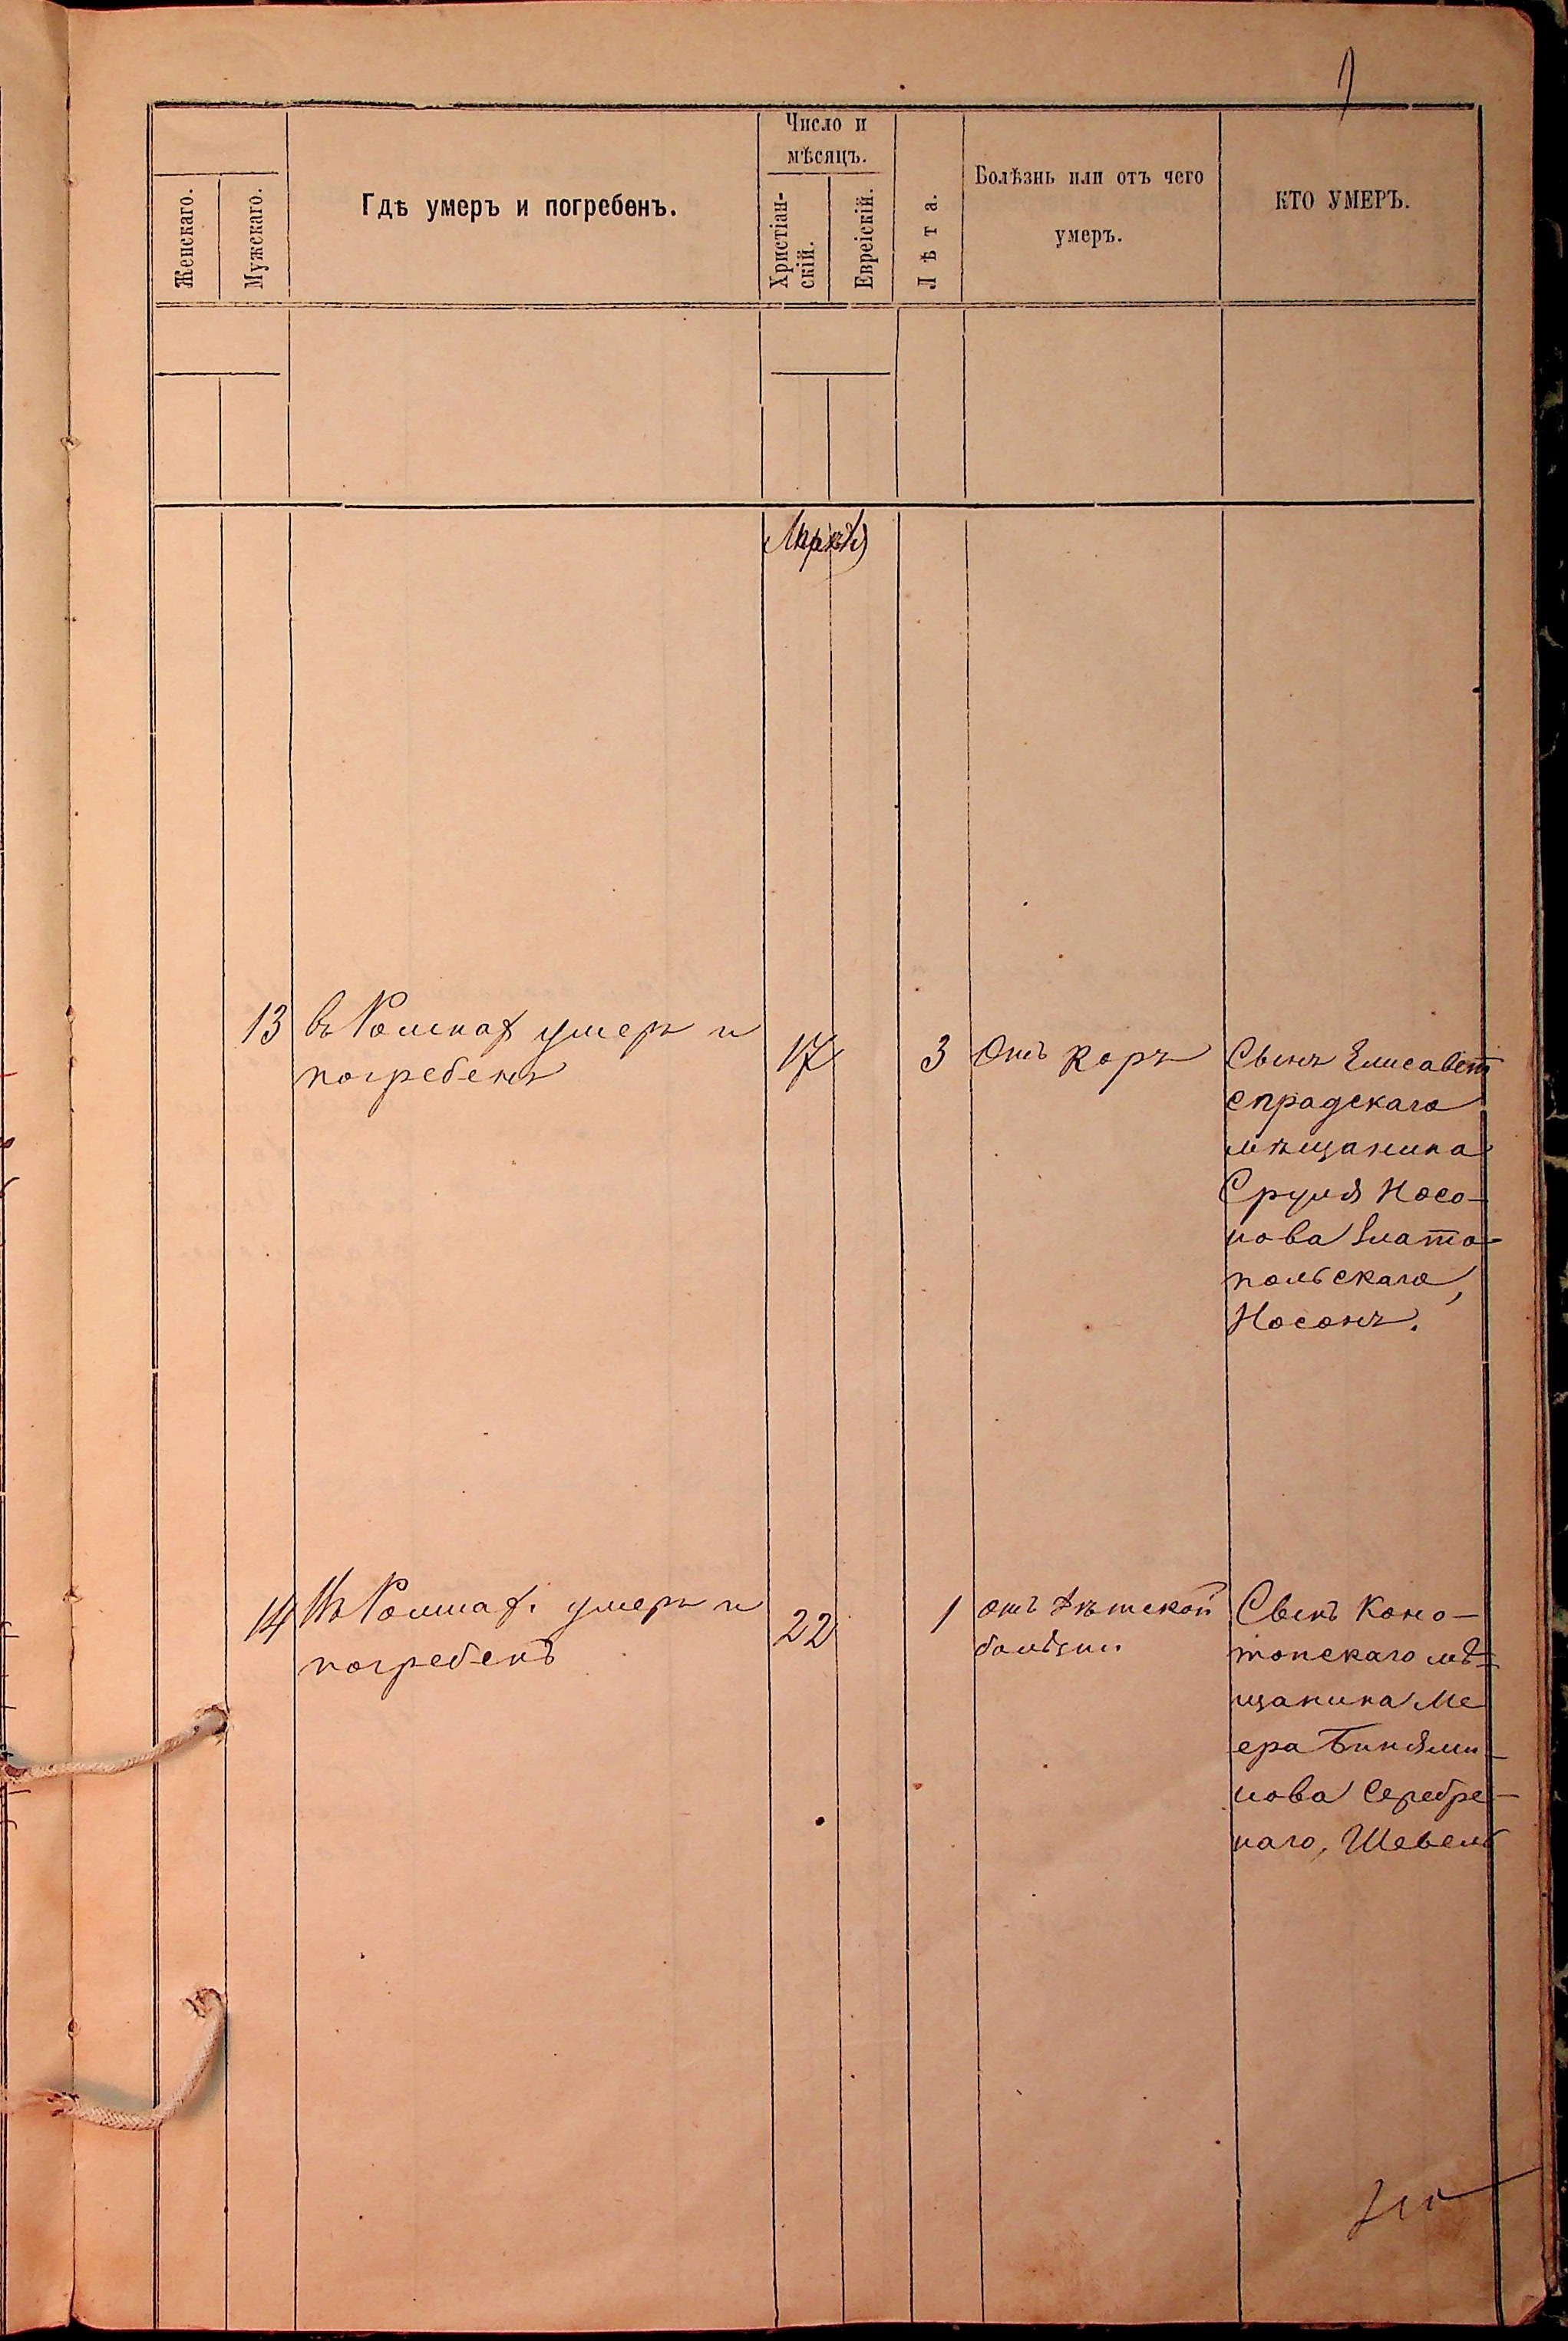 Женскаго.
Мужскаго.
Гдѣ умеръ и погребенъ.
Число и
мѣсяцъ.
Христіан-
скій.
Евреіскій.
Лѣта.
Болѣзнь или отъ чего
умеръ.
КТО УМЕРЪ.
Мартъ
13
въ Ромнах умеръ и
погребенъ
17
3
Отъ коръ
Сынъ Елисавет
спрадскаго
мѣщанина
Сруля Носо-
нова Златo-
польскаго,
Носонъ.
14
Въ Ромнах. умеръ и
погребенъ
22
1
отъ дѣтской
болѣзни
Сынъ Коно-
топскаго мѣ-
щанина Ме
ера Биніями-
нова Серебре-
наго, Шевель